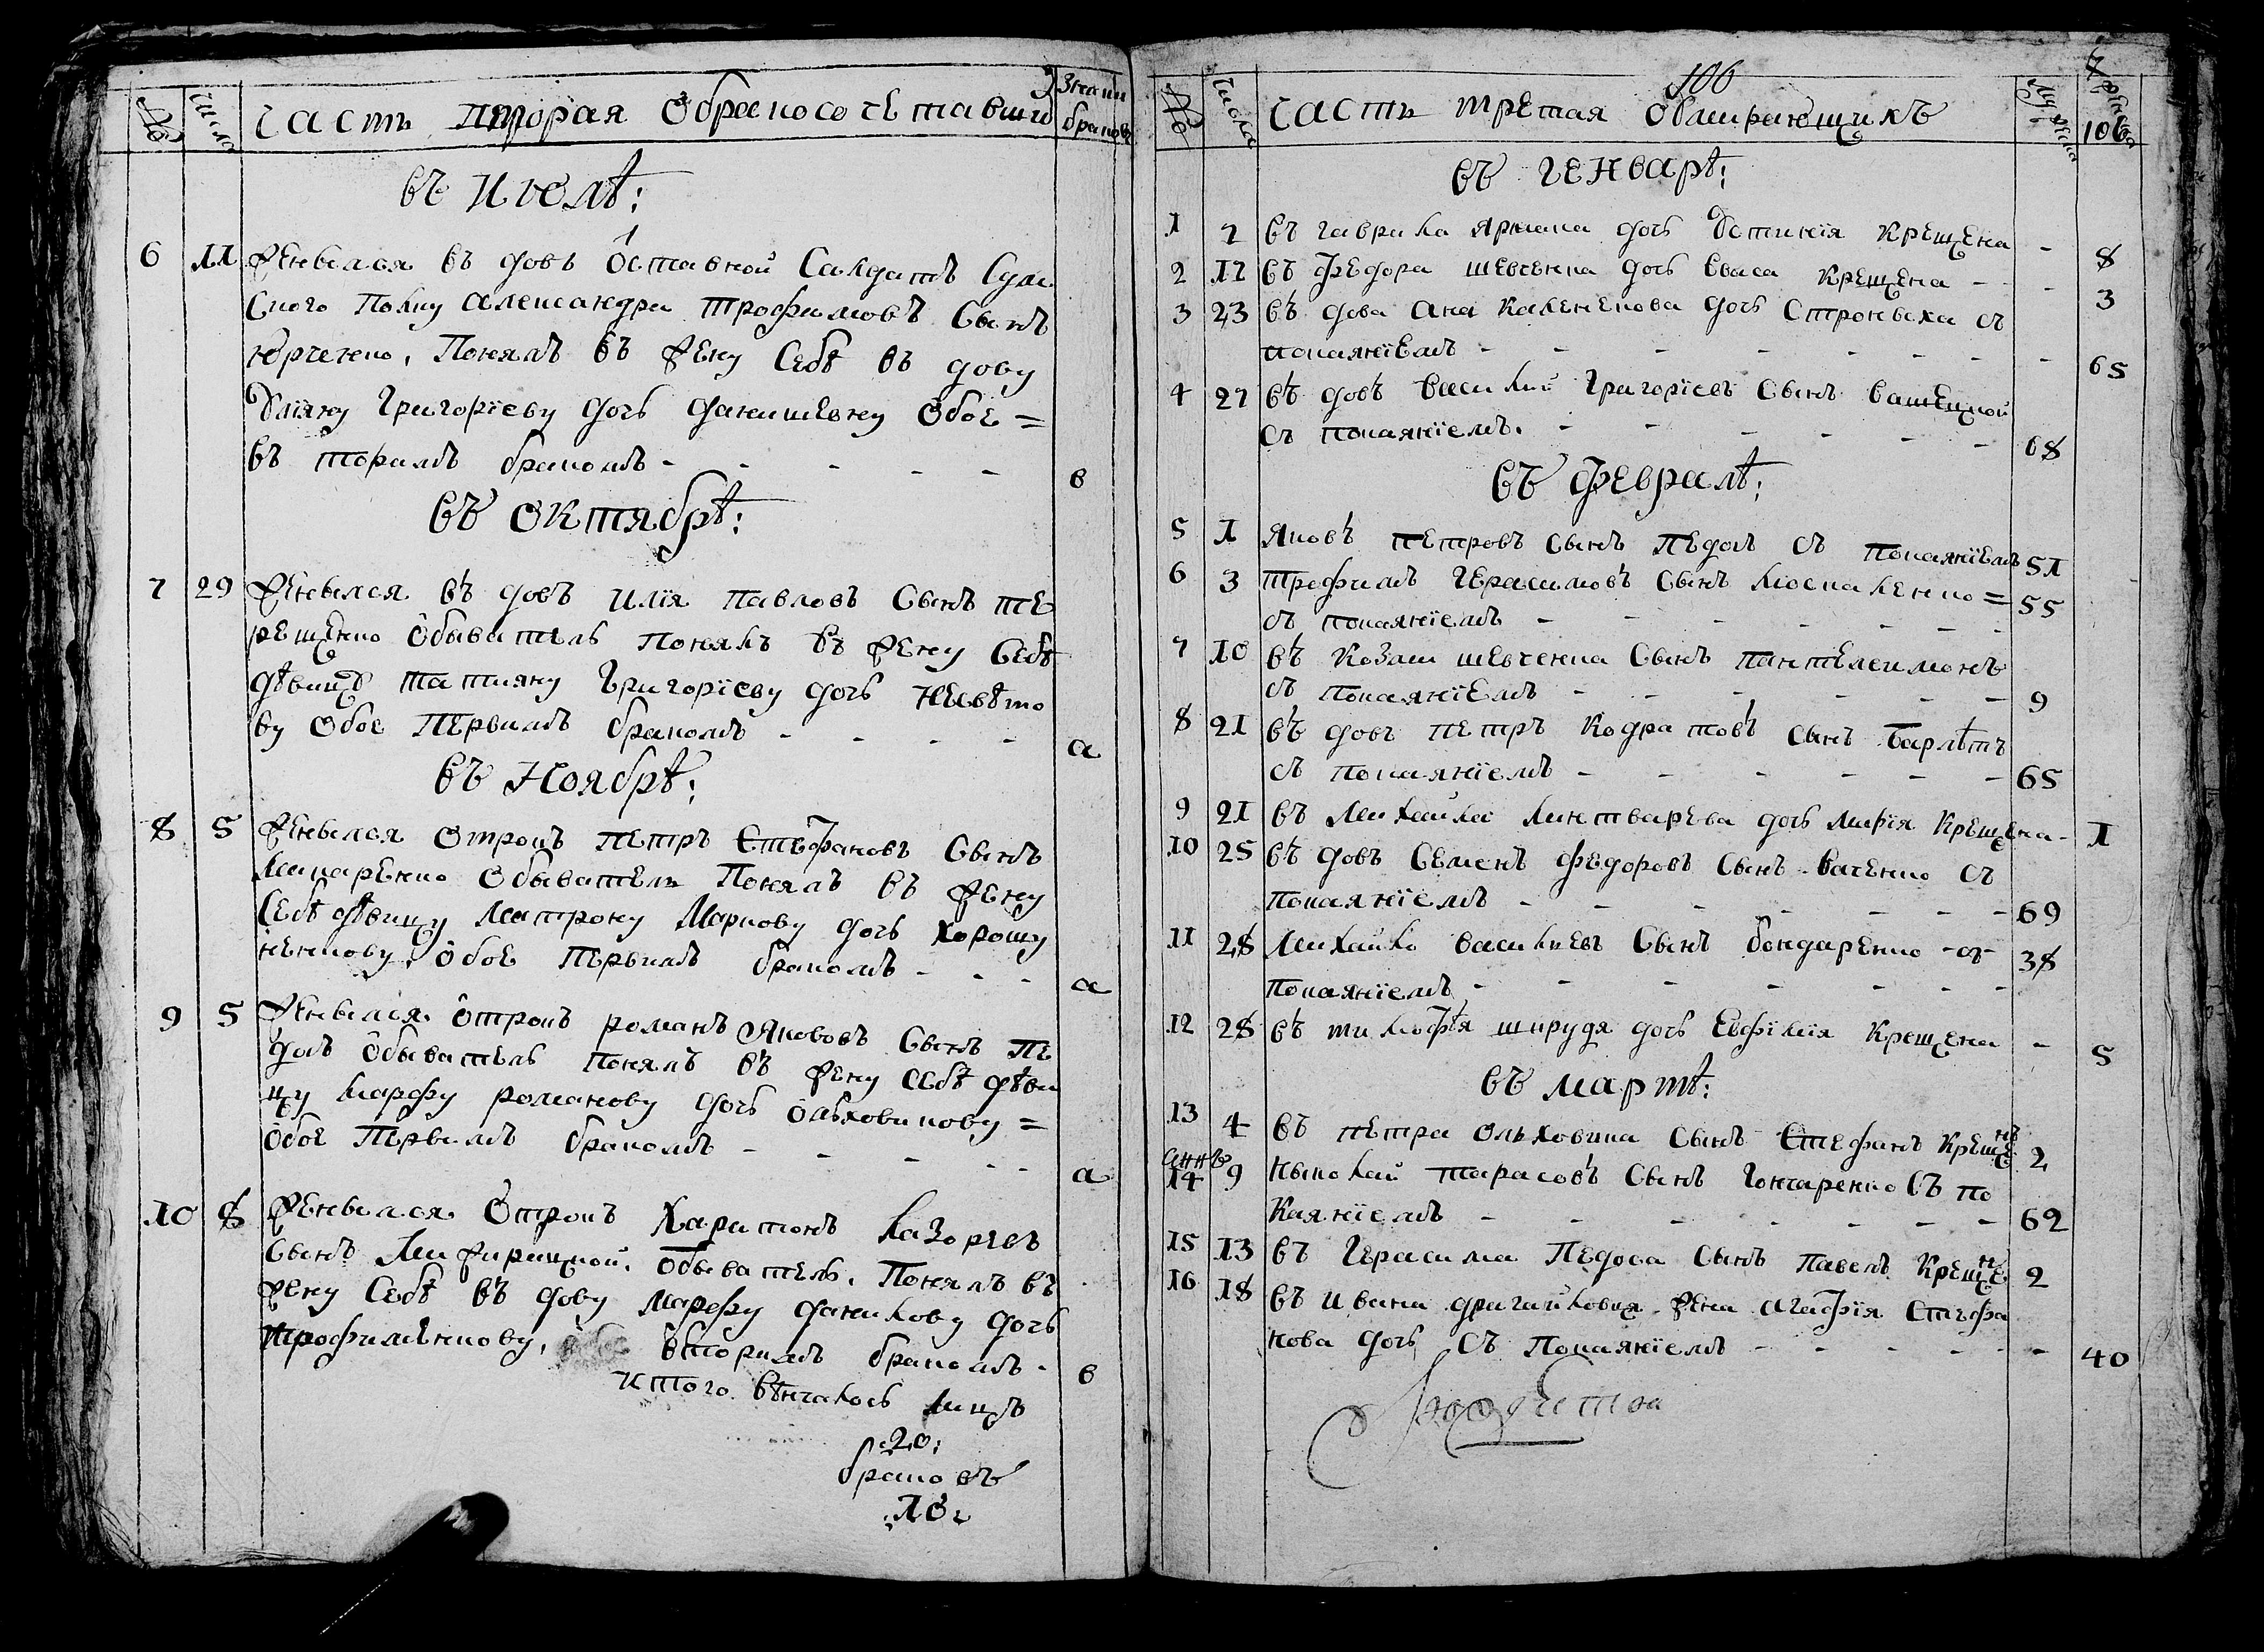 № Числа Часть вторая О бракосочетавши Звани браковъ
въ Июлѣ:
6 11 Женвился въ довъ Оставной Салдатъ Сум
Ского Полку Александра Трофимовъ Сынъ
Юрченко, Понялъ въ жену Себѣ въ дову
Улiяну Григорїеву дочъ Обое =
въ торимъ бракомъ - - - - - в
въ Октябрѣ:
7 29 Женвился въ довъ Илїя Павловъ Сынъ Те
рещенко Обыватель понялъ въ жену Себѣ
дѣвицу Татияну Григорїеву дочъ
ву Обое Первимъ бракомъ - - - - а
въ Ноябрѣ:
8 5 Женвился Отрокъ Петръ Стефановъ Сынъ
Макаренко Обыватель Понялъ въ жену
Себѣ дѣвицу Матрону Маркову дочъ Хорошу
ненкову, Обое Первимъ бракомъ - - - а
9 5 Женвился Отрокъ романъ Якововъ Сынъ Пе
дол Обыватель понялъ въ жену Себѣ дѣви
цу Марфу романову дочъ Ольховикову =
Обое Первимъ бракомъ - - - - - а
10 8 Женвился Отрокъ Харитонъ Лазоревъ
Сынъ Обыватель. Понялъ въ
жену Себѣ въ дову Марфу данилову дочъ
Трофименкову, вторимъ бракомъ - в
Итого вѣнчалось лицъ
:20:
браковъ
:10:
106
№ Числа Часть третая Обмирающихъ 106
въ Генварѣ:
1 7 въ гаврила Ярмака дочъ Устинїя Крещена - 8
2 17 въ Федора шевченка дочъ Евва Крещена - - 3
3 23 въ дова Ана дочъ съ
покаянїемъ - - - - - - - 65
4 27 въ довъ Василий Григорїевъ Сынъ
съ покаянїемъ. - - - - - - 68
въ Февралѣ:
5 1 Яковъ петровъ Сынъ Педол съ покаянїемъ 51
6 3 Трофимъ Герасимовъ Сынъ = 55
съ покаянїемъ - - - - - - -
7 10 въ Козми шевченка Сынъ пантелеимонъ
съ покаянїемъ - - - - - - 9
8 21 въ довъ петръ Кодратовъ Сынъ
съ покаянїемъ - - - - - - 65
9 21 въ Михайла Линтварева дочъ Марїя Крещена - 1
10 25 въ довъ Семенъ Федоровъ Сынъ Ваченко съ
покаянїемъ - - - - - - - 69
11 28 Михайло Василиевъ Сынъ бондаренко - съ - 38
покаянїемъ - - - - - - -
12 28 въ тимофѣя дочъ Евфїмїя Крещена - 5
въ Мартѣ:
13 4 въ петра Ольховика Сынъ Стефанъ Крещенъ 2
14 9 Николай тарасовъ Сынъ Гончаренко съ по
Каянїемъ - - - - - - - 62
15 13 въ Герасима Педоса Сынъ Павелъ Крещенъ 2
16 18 въ Ивана жена Агафїя Стефа
нова дочъ съ Покаянїемъ - - - - - - 40